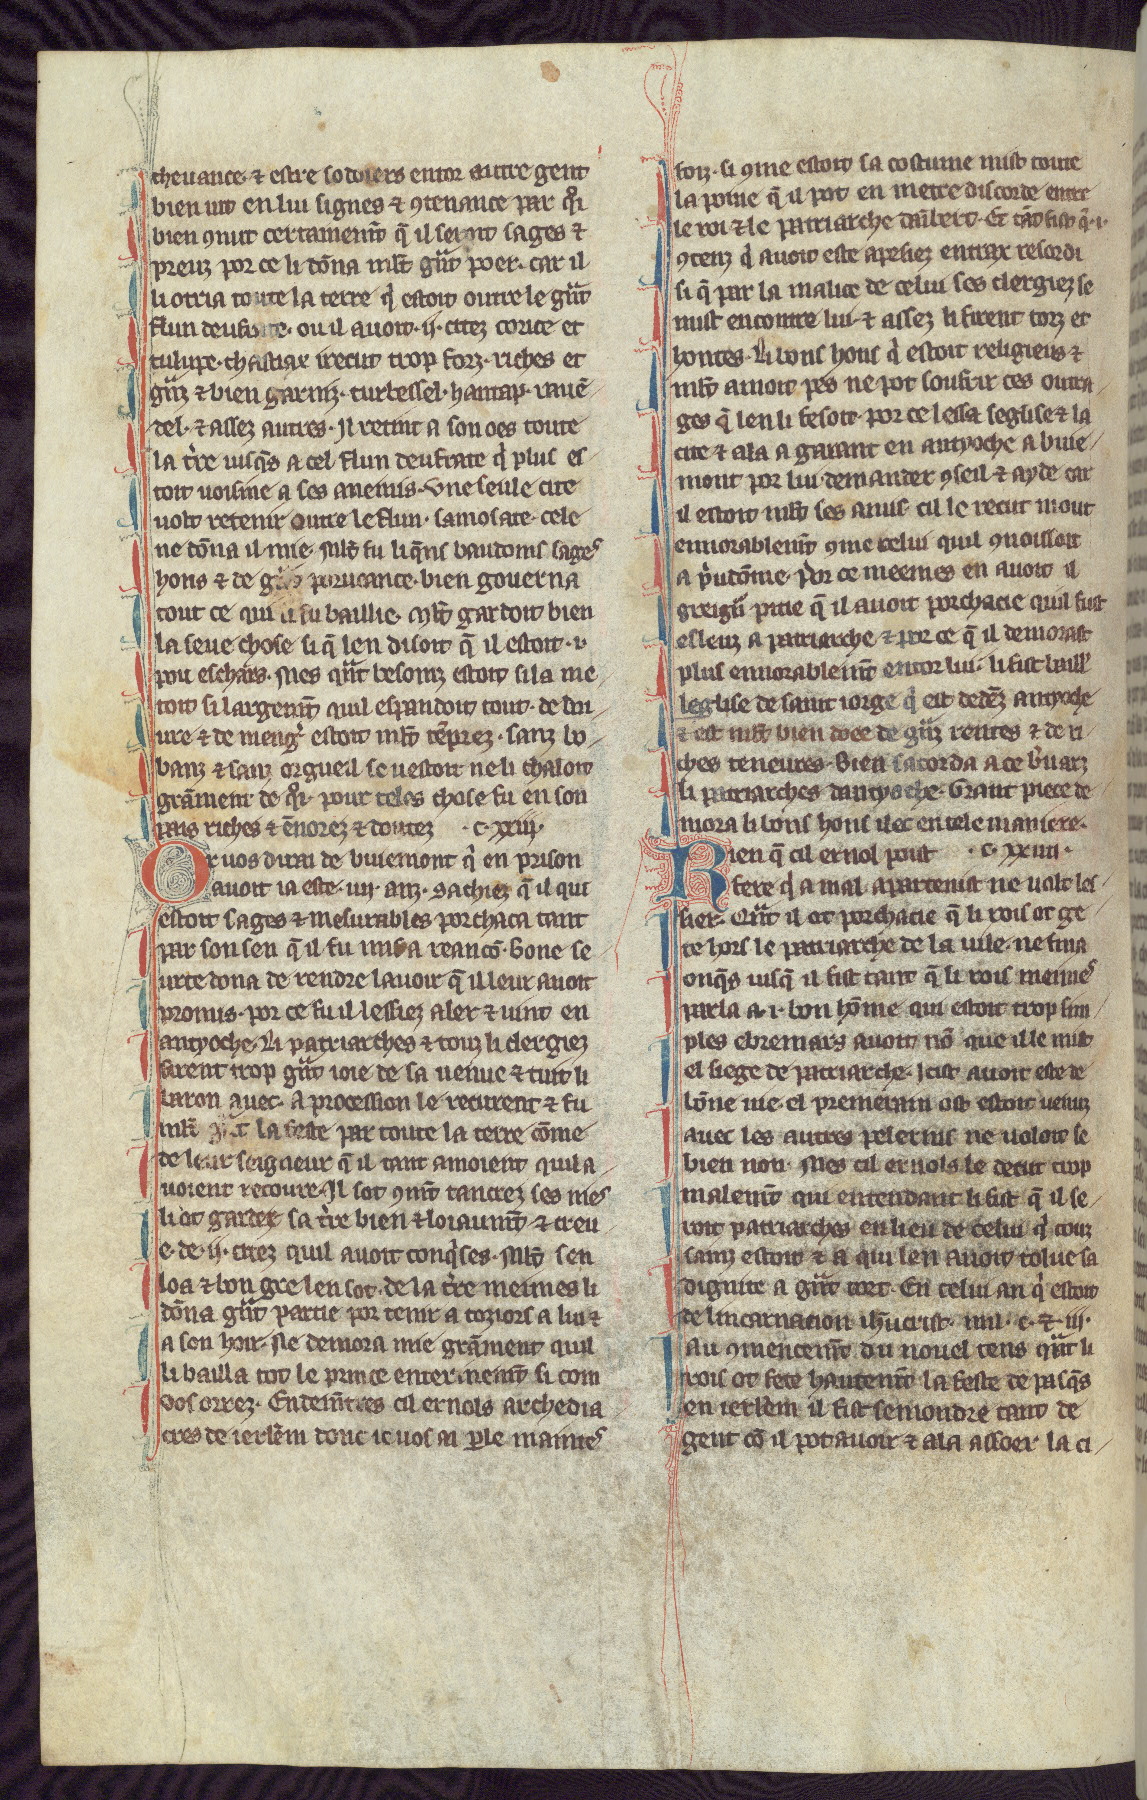 cheuance ⁊ estre sodoiers entor autre gent
bien uit en lui signes ⁊ ꝯtenance par q̃i
bien ꝯnut certainem̃t q̃ il seroit sages ⁊
preuz por ce li dõna ml̃t gr̃t poer. car il
li otria toute la terre q̃ estoit outre le gr̃t
flun deufrate. ou il auoit .ij. citez corice et
tulupe. chastiax irecut trop forz. riches et
gr̃z ⁊ bien garniz. turbessel. hantap. rauẽ
del. ⁊ assez autres. Il retint a son oes toute
la t̃re iusq̃s a cel flun deufrate q̃ plus es
toit uoisine a ses anemis. Vne seule cite
uolt retenir outre le flun. samosate. cele
ne dõna il mie. Ml̃t fu li q̃ns baudoins sages
hons ⁊ de porueance. bien gouerna
tout ce qui il fu baillie. Ml̃t gardoit bien
la seue chose si q̃ len disoit q̃ il estoit .i.
pou eschars. Mes q̃nt besoinz estoit si la me
toit si largem̃t quil espandoit tout. de boi
ure ⁊ de meng̃ estoit ml̃t tẽprez. sanz bo
banz ⁊ sanz orgueil se uestoit ne li chaloit
grãment de q̃i. pour teles chose fu en son
pais riches ⁊ ẽnorez ⁊ doutez .c.xxiij.
Or uos dirai de buiemont q̃ en prison
auoit ia este .iiij. anz. sachiez q̃ il qui
estoit sages ⁊ mesurables porchaca tant
par son sen q̃ il fu mis a reancõ. Bone se
urte dona de rendre lauoir q̃ il leur auoit
promis. por ce fu il lessiez aler ⁊ uint en
antyoche. Li patriarches ⁊ touz li clergiez
firent trop gr̃t ioie de sa uenue ⁊ tuit li
baron auec. A procession le recurent ⁊ fu
ml̃t la feste par toute la terre cõme
de leur seigneur q̃ il tant amoient quil a
uoient recoure. Il sot ꝯm̃t tancrez ses nies
li ot gardee sa t̃re bien ⁊ loiaum̃t ⁊ creu
e. de .ij. citez quil auoit conq̃ses. Ml̃t sen
loa ⁊ bon gre len sot. de la t̃re meimes li
dõna gr̃t partie por tenir a toziors a lui ⁊
a son hoir. Ne demora mie grãment quil
li bailla tot le prince enterinem̃t si com
vos orrez. Endem̃tres cil ernols archedia
cres de ierl̃em donc ie uos ai ꝑle maintes
foiz. si ꝯme estoit sa costume mist toute
la poine q̃ il pot en metre discorde entre
le roi ⁊ le patriarche daĩbert. Et tãt fist q̃ .i.
ꝯtenz q̃ auoit este apesiez entrax resordi
si q̃ par la malice de celui ses clergiez se
mist encontre lui. ⁊ assez li firent torz et
hontes. Li bons hons q̃ estoit religieus ⁊
ml̃t amoit pes ne pot soufrir ces outra
ges q̃ len li fesoit. por ce lessa seglise ⁊ la
cite ⁊ ala a garant en antyoche a buie
mont por lui demander ꝯseil ⁊ ayde car
il estoit ml̃t ses amis. cil le recut mout
ennorablem̃t ꝯme celui quil ꝯnoissoit
a p̃udõme. Por ce meemes en auoit il
greigñ ꝑtie q̃ il auoit porchacie quil fust
esleuz a patriarche. ⁊ por ce q̃ il demorast
plus ennorablem̃t entor lui. li fist baill̃
leglise de saint iorge q̃ est dedẽz antyoche
⁊ est ml̃t bien doee de gr̃z rentes ⁊ de ri
ches teneures. Bien sacorda a ce b̃narz
li patriarches dantyoche. Grant piece de
mora li bons hons ilec en tele maniere.
Rien q̃ cil ernol poist .c.xxiiii.
fere q̃ a mal apartenist ne uolt les
sier. Qñt il ot porchacie q̃ li rois ot ge
te hors le patriarche de la uile. ne fina
onq̃s iusq̃ il fist tant q̃ li rois meimes
parla a .i. bon hõme qui estoit trop sim
ples ebremars auoit nõ que il le mist
el siege de patriarche. Icist auoit este de
bõne uie. el premerain ost estoit uenuz
auec les autres pelerins ne uoloit se
bien non. Mes cil ernols le decut trop
malem̃t qui entendant li fist q̃ il se
roit patriarches en lieu de celui q̃ touz
sainz estoit ⁊ a qui len auoit tolue sa
dignite a gr̃t tort. En celui an q̃ estoit
de lincarnation ih̃ucrist. mil. c. ⁊ .iij.
Au ꝯmencem̃t du nouel tens q̃nt li
rois ot fete hautem̃t la feste de pasq̃s
en ierl̃em il fist semondre tant de
gent cõ il pot auoir ⁊ ala assoer la ci